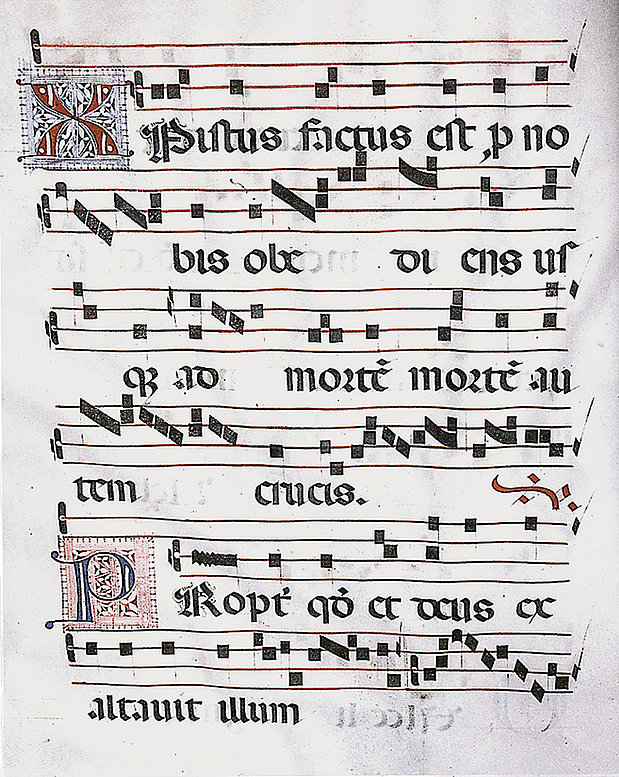 XPistus factus est p no
bis obe di ens us
q3 ad mortē mortē au
tem crucis.
PRopt qđ et deus ex
altavit illum